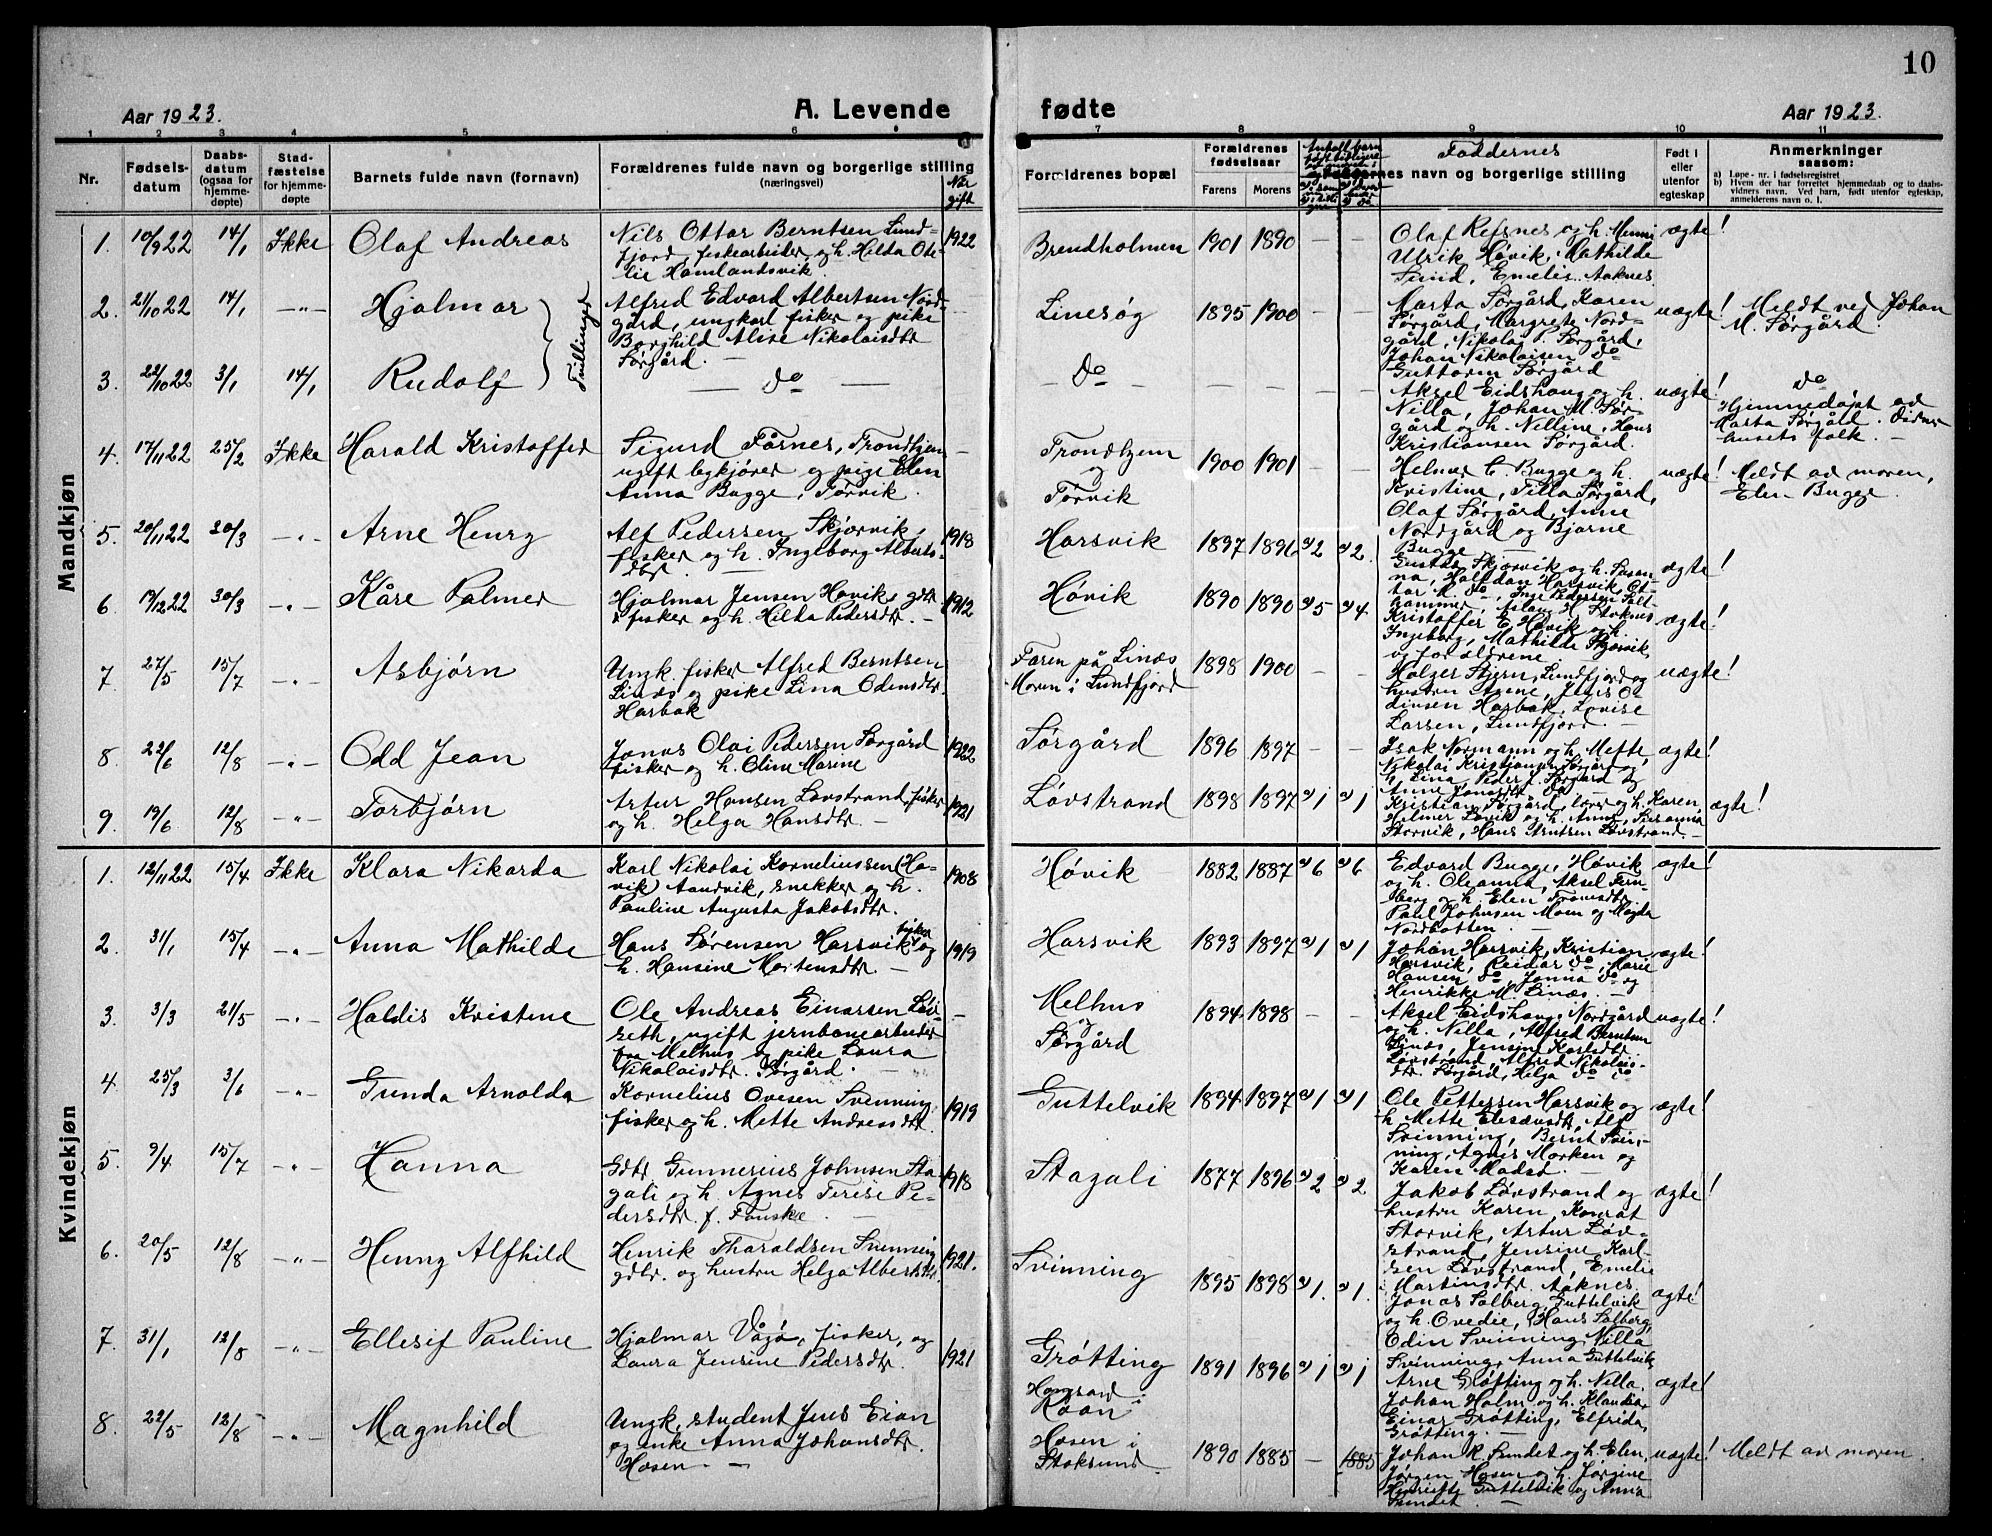 10
Aar 1923.
A. Levende
fødte
Aar 1923.
1 2 3 4 5 6 7 8 9 10 11
Nr.
Fødsels-
datum
Daabs-
datum
(ogsaa for
hjemme-
døpte)
Stad-
fæstelse
for hjemme-
døpte
Barnets fulde navn (fornavn)
Forældrenes fulde navn og borgerlige stilling
(næringsvei)
Når
gift
Forældrenes bopæl
Forældrenes
fødselsaar
Farens Morens
Faddernes
navn og borgerlige stilling
Født i
eller
utenfor
egteskap
Anmerkninger
saasom:
a) Løpe-nr. i fødselsregistret
b) Hvem der har forrettet hjemmedaab og to daabs-
vidners navn. Ved barn, født utenfor egteskap,
anmelderens navn o. l.
Mandkjøn
1. 10/9 22 14/1 Ikke Olaf Andreas
Nils Ottar Berntsen Lund-
fjord, fiskearbeider og h. Helda Ote-
lie Hamlandsvik.
1922
Brendholmen 1901 1890 — —
Olaf Refsnes og h. Menni
Ulrik Høvik, Mathilde
Sund, Emelie Aaknes
ægte!
2. 21/10 22 14/1 —"— Hjalmar
Tvillinger
Alfred Edvard Albertsen Nord-
gård, ungkarl fisker og pike
Borghild Alise Nikolaisdtr
Sørgård. —
Linesøy 1895 1900 — —
Marta Sørgård, Karen
Sørgård, Margrete Nord-
gård, Nikolai P. Sørgård,
Johan Nikolaisen do
Guttorm Sørgård
uægte!
Meldt ved Johan
M. Sørgård.
3. 22/10 22 3/1 14/1 Rudolf
— do —
— do — — — — —
Aksel Eidshaug og h.
Nilla, Johan M. Sør-
gård og h. Nelline, Hans
Kristiansen Sørgård.
uægte!
do
Hjemmedøpt av
Marta Sørgård.
husets folk. —
4. 17/11 22 25/2 Ikke Harald Kristoffer
Sigurd Fårnes, Trondhjem
ugift bykjører og pige Elen
Anna Bugge, Tørvik.
—
Trondhjem
og
Tørvik
1900 1901 — —
Helmer C. Bugge og h.
Kristine, Tilla Sørgård,
Olaf Sørgård, Anne
Nordgård og Bjarne
Bugge —
uægte!
Meldt av moren,
Elen Bugge.
5. 20/11 22 30/3 —"— Arne Henry
Alf Pedersen Skjørvik,
fisker og h. Ingeborg Alberts-
dtr. —
1918
Harsvik 1897 1896 a) 2 a) 2.
Gustav Skjørvik og h. Susan-
na, Halfdan Harsvik, Ot-
tar K. do, Inge Pedersen Salt-
hammer, Aslaug H. Stoknes
ægte!
6. 19/12 22 30/3 —"— Kåre Palmer
Hjalmar Jensen Høvik, gdbr
& fisker og h. Hilda Pedersdtr. —
1912
Høvik 1890 1890 a) 5 a) 4
Kristoffer E. Høvik og h.
Ingeborg, Mathilde Skjørvik
og forældrene —
ægte!
7. 27/5 15/7 —"— Asbjørn
Ungk. fisker Alfred Berntsen
Linæs og pike Lina Odinsdtr.
Harbak
Faren på Linæs
Moren i Lundfjord
1898 1900 — —
Holger Stjern, Lundfjord og
hustru Anne, Jens O-
dinsen Harbak, Lovise
Larsen, Lundfjord. —
uægte!
8. 22/6 12/8 —"— Odd Jean
Jonas Olai Pedersen Sørgård
fisker og h. Oline Marine
1922
Sørgård 1896 1897 — —
Isak Normann og h. Mette
Nikolai Kristjansen Sørgård og
h. Lina, Peder J. Sørgård og
Anne Jonasdtr do —
ægte!
9. 19/6 12/8 —"— Torbjørn
Artur Hansen Løvstrand, fisker
og h. Helga Hansdtr. —
1921
Løvstrand 1898 1897 a) 1 a) 1
Kristian Sørgård, lærer og h. Karen,
Helmer Løvik og h. Anna, Susanna
Storvik, Hans Arntsen Løvstrand. —
ægte!
Kvindekjøn
1. 12/11 22 15/4 Ikke Klara Nikarda
Karl Nikolai Korneliussen (Hø-
vik) Aandvik, snekker og h.
Pauline Augusta Jakobsdtr.
1908
Høvik 1882 1887 a) 6 a) 6
Edvard Bugge, Høvik
og h. Oleanna, Aksel Fern-
berg og h. Elen
Paul Johnsen Moen og Magda
Nordbotten. —
ægte!
2. 31/1 15/4 —"— Anna Mathilde
Hans Sørensen Harsvik fisker og
h. Hansine Mortensdtr. —
1919
Harsvik 1893 1897 a) 1 a) 1
Johan Harsvik, Kristian
Harsvik, Reidar do, Marie
Hansen do, Jonna do og
Henrikke M. Linæs. —
ægte!
3. 3/3 21/5 —"— Haldis Kristine
Ole Andreas Einarsen Løv-
seth, ugift jernbanearbeider
fra Melhus og pike Laura
Nikolaisdtr. Sørgård.
—
Melhus
og
Sørgård
1894 1898 — —
Aksel Eidshaug, Nordgård
og h. Nilla, Alfred Berntsen
Linæs, Jensine Karlsdtr.
Løvstrand, Alfred Nikolais-
dtr. Sørgård, Helga do do
uægte!
4. 25/3 3/6 —"— Gunda Arnolda
Kornelius Ovesen Svenning
fisker og h. Mette Andreasdtr.
1919
Guttelvik 1894 1897 a) 1 a) 1
Ole Pettersen Harsvik og
h. Mette Elesæusdtr, Alf
Svinning, Bernt Svin-
ning, Agnes Morken og
Karen Madsd. —
ægte!
5. 9/4 15/7 —"— Hanna
Gdbr Gunnerius Johnsen Sta-
gali og h. Agnes Terese Pe-
dersdtr. f. Fauske. —
1918
Stagali 1877 1896 a) 2 a) 2
Jakob Løvstrand og
hustru Karen, Konrat
Storvik, Artur Løv-
strand, Jensine Karl-
sen Løvstrand, Emelie
Martinsdtr. Aaknes
ægte!
6. 20/5 12/8 —"— Henny Alfhild
Henrik Tharaldsen Svenning
gdbr. og hustru Helga Albertsdtr.
1921.
Svinning 1895 1898 a) 1. a) 1.
Jonas Salberg, Guttelvik
og h. Ovedie, Hans Salberg,
Edin Svinning, Nilla
Svinning, Anna Guttelvik
ægte!
7. 31/1 12/8 —"— Ellesif Pauline
Hjalmar Vågø, fisker, og
Laura Jensine Pedersdtr.
1921
Grøtting 1891 1896 a) 1 a) 1
Arne Grøtting og h. Nilla.
Johan Holm og h. Klaudia,
Einar Grøtting, Elfrida
Grøtting. —
ægte!
8. 22/5 12/8 —"— Magnhild
Ungk. student Jens Eian
og enke Anna Johansdtr.
Hosen. —
i
Roan.
Hosen i
Stoksund.
1890 1885 — 1885
Johan K. Sundet og h. Elen,
Jørgen Hosen og h. Jørgine
Henriette Guttelvik og Anna
Sundet. —
uægte!
Meldt av moren.